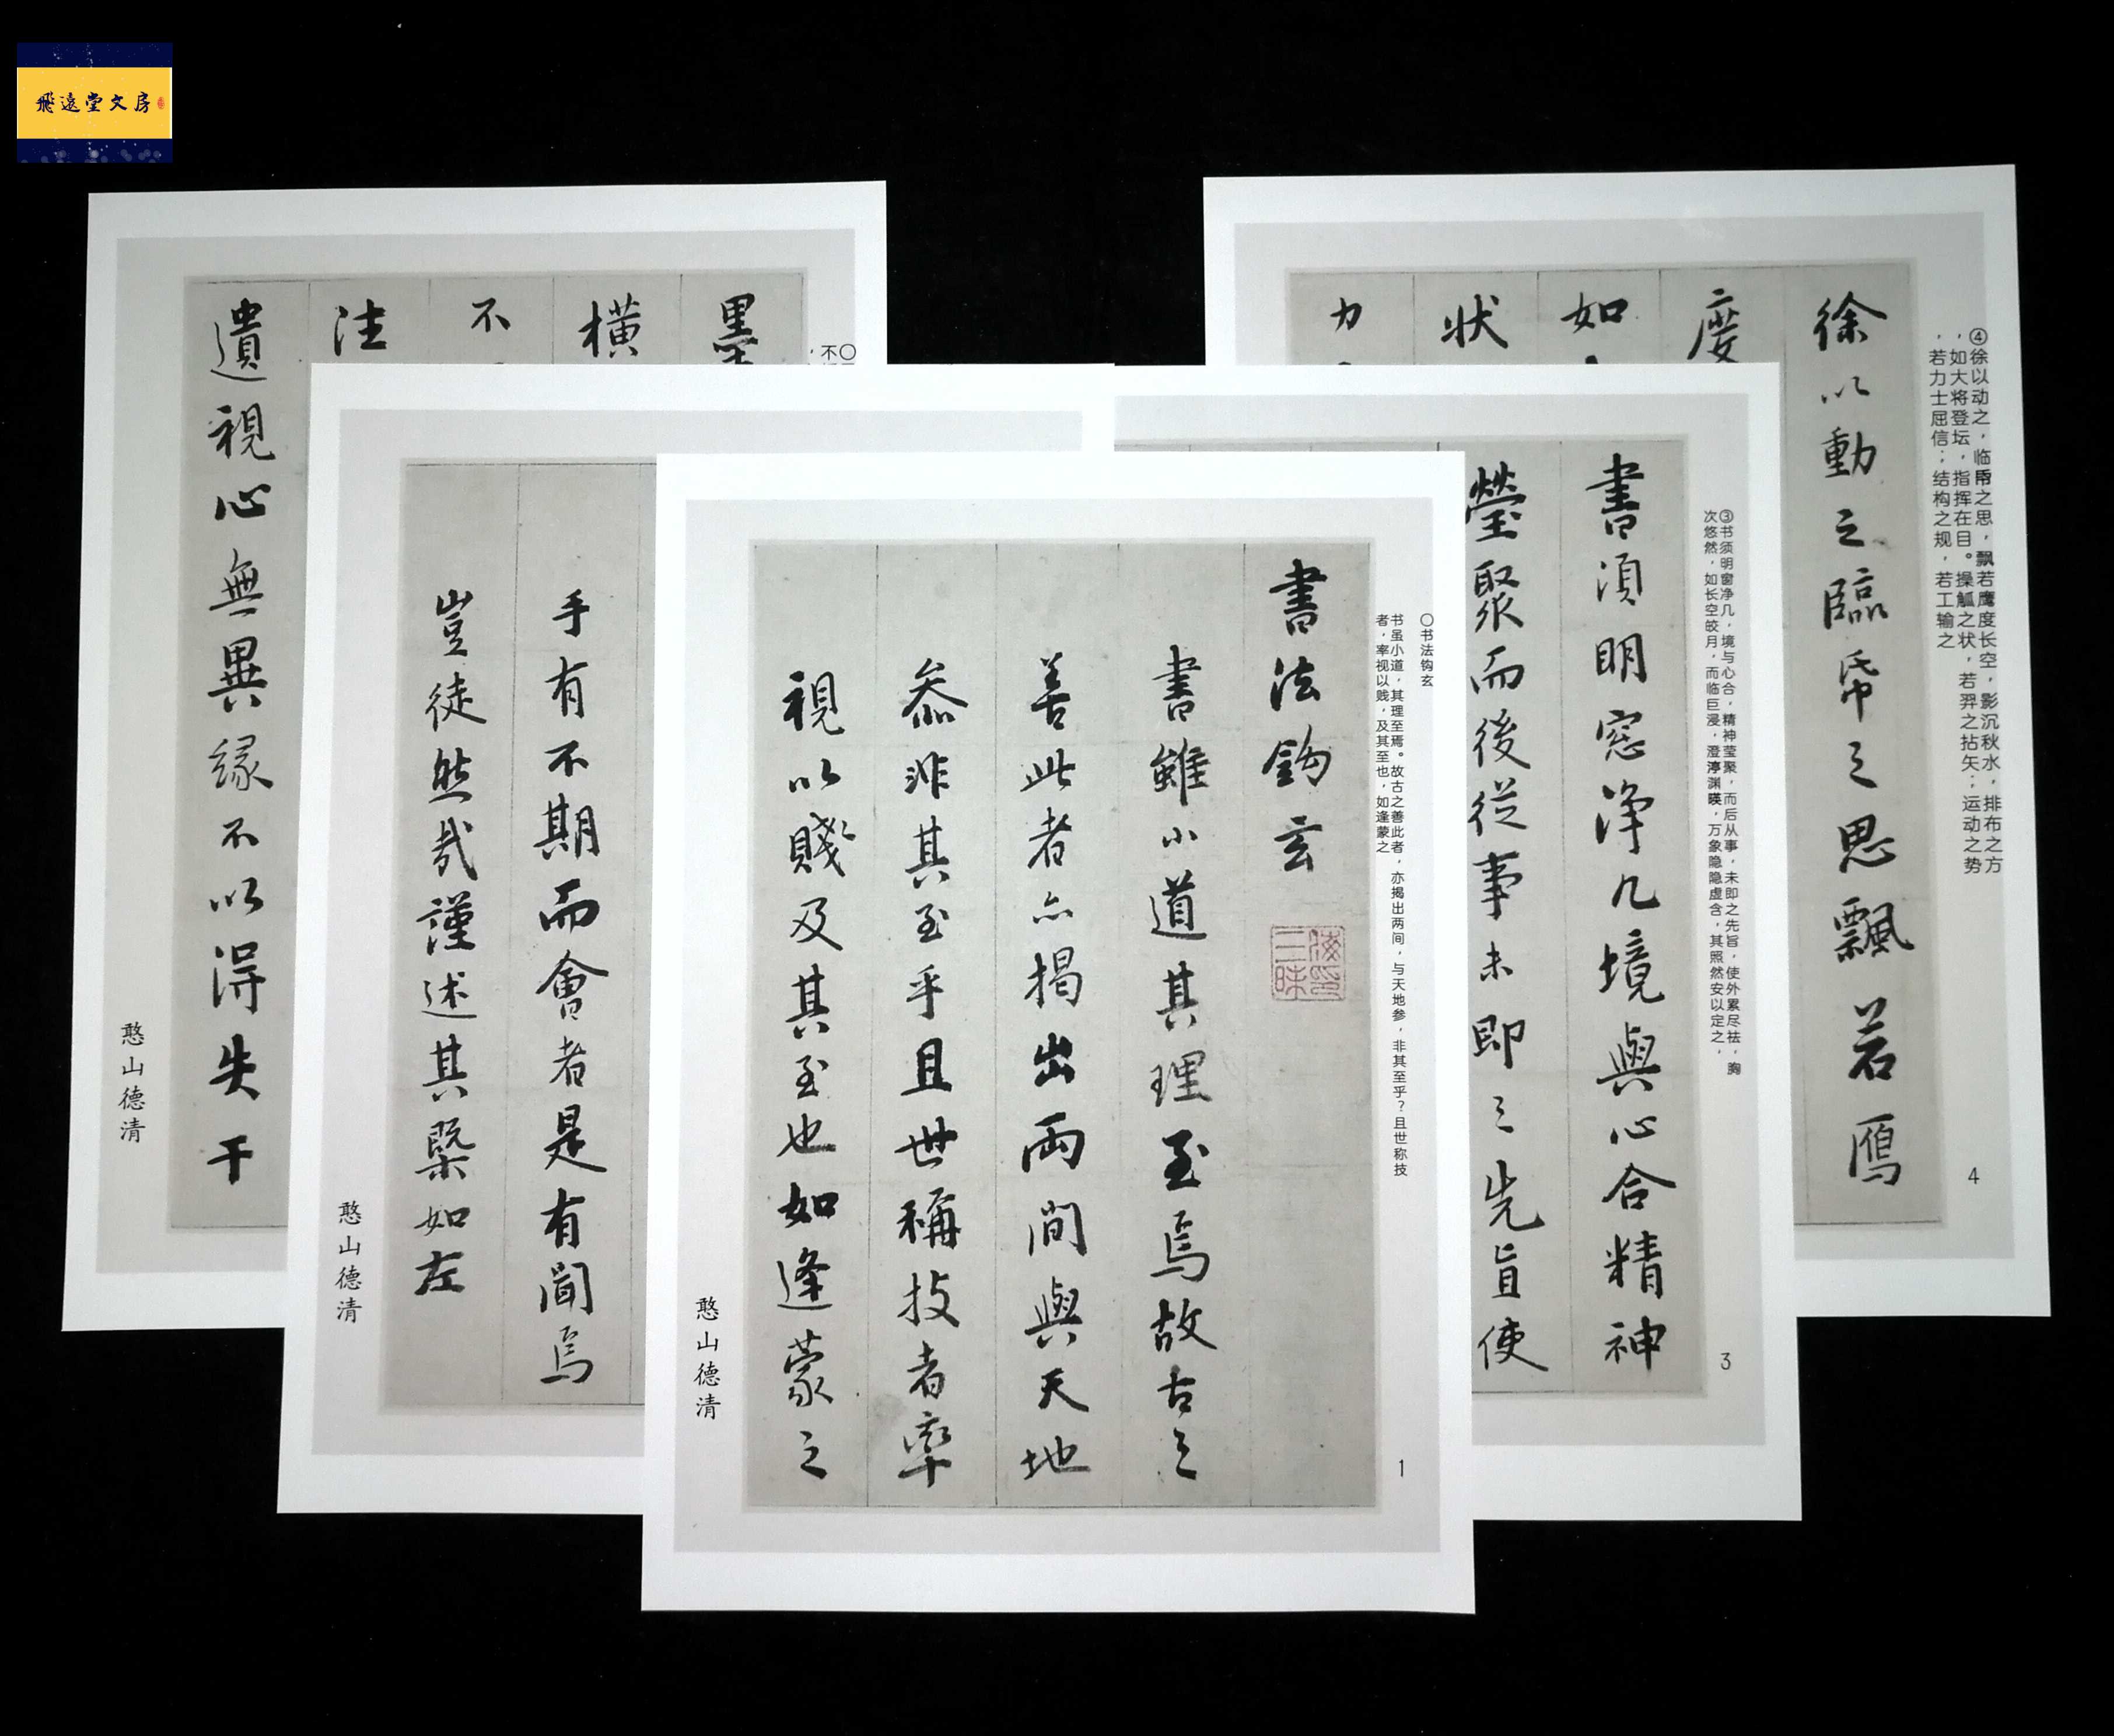 飛遠堂文房
〇书法钩玄
书虽小道，其理至焉。故古之善此者，亦揭出两间，与天地参，非其至乎？且世称技
者，率视以贱，及其至也，如逢蒙之
書法鈎玄
書雖小道其理至焉故古之
善此者亦揭出兩間與天地
叅非其至乎且世稱技者率
視以賤及其至也如逢蒙之
憨山德清
1
手有不期而會者是有聞焉
豈徒然哉謹述其槩如左
憨山德清
③书须明窗净几，境与心合，精神莹聚，而后从事，未即之先旨，使外累尽祛，胸
次悠然，如长空皎月，而临巨浸，澄渟渊暎，万象隐隐虚含，其照然安以定之，
書須明窓淨几境與心合精神
瑩聚而後從事未即之先旨使
3
④徐以动之，临帋之思，飘若鹰度长空，影沉秋水，排布之方
，如大将登坛，指挥在目。操觚之状，若羿之拈矢；运动之势
，若力士屈信；结构之规，若工输之
徐以動之臨帋之思飄若鴈
度
如
狀
力
4
〇
不
墨
橫
不
法
遺視心無異緣不以得失干
憨山德清